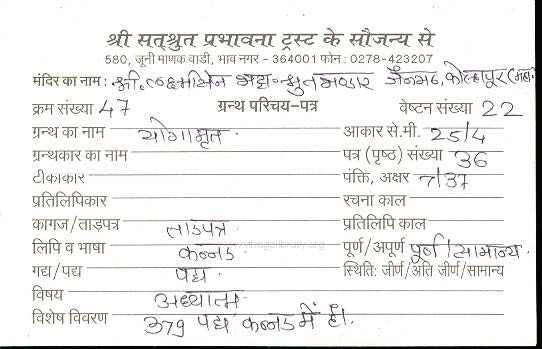 श्री सत्श्रुत प्रभावना ट्रस्ट के सौजन्य से
580, जूनी माणक वाडी, भाव नगर - 364001 फोन : 0278-423207
मंदिर का नाम : श्री. लक्ष्मीसेन भट्टा. श्रुतभण्डार जैनमठ, कोल्हापुर
क्रम संख्या 47 ग्रन्थ परिचय-पत्र वेष्टन संख्या 22
ग्रन्थ का नाम योगामृत आकार से.मी. 25/4
ग्रन्थकार का नाम पत्र (पृष्ठ) संख्या 36
टीकाकार पंक्ति, अक्षर 7/37
प्रतिलिपिकार रचना काल
कागज/ताड़पत्र ताडपत्र प्रतिलिपि काल
लिपि व भाषा कन्नड पूर्ण/अपूर्ण पूर्ण/सामान्य.
गद्य/पद्य पद्य स्थिति: जीर्ण/अति जीर्ण/सामान्य
विषय अध्यात्म
विशेष विवरण 379 पद्य कन्नड में है।